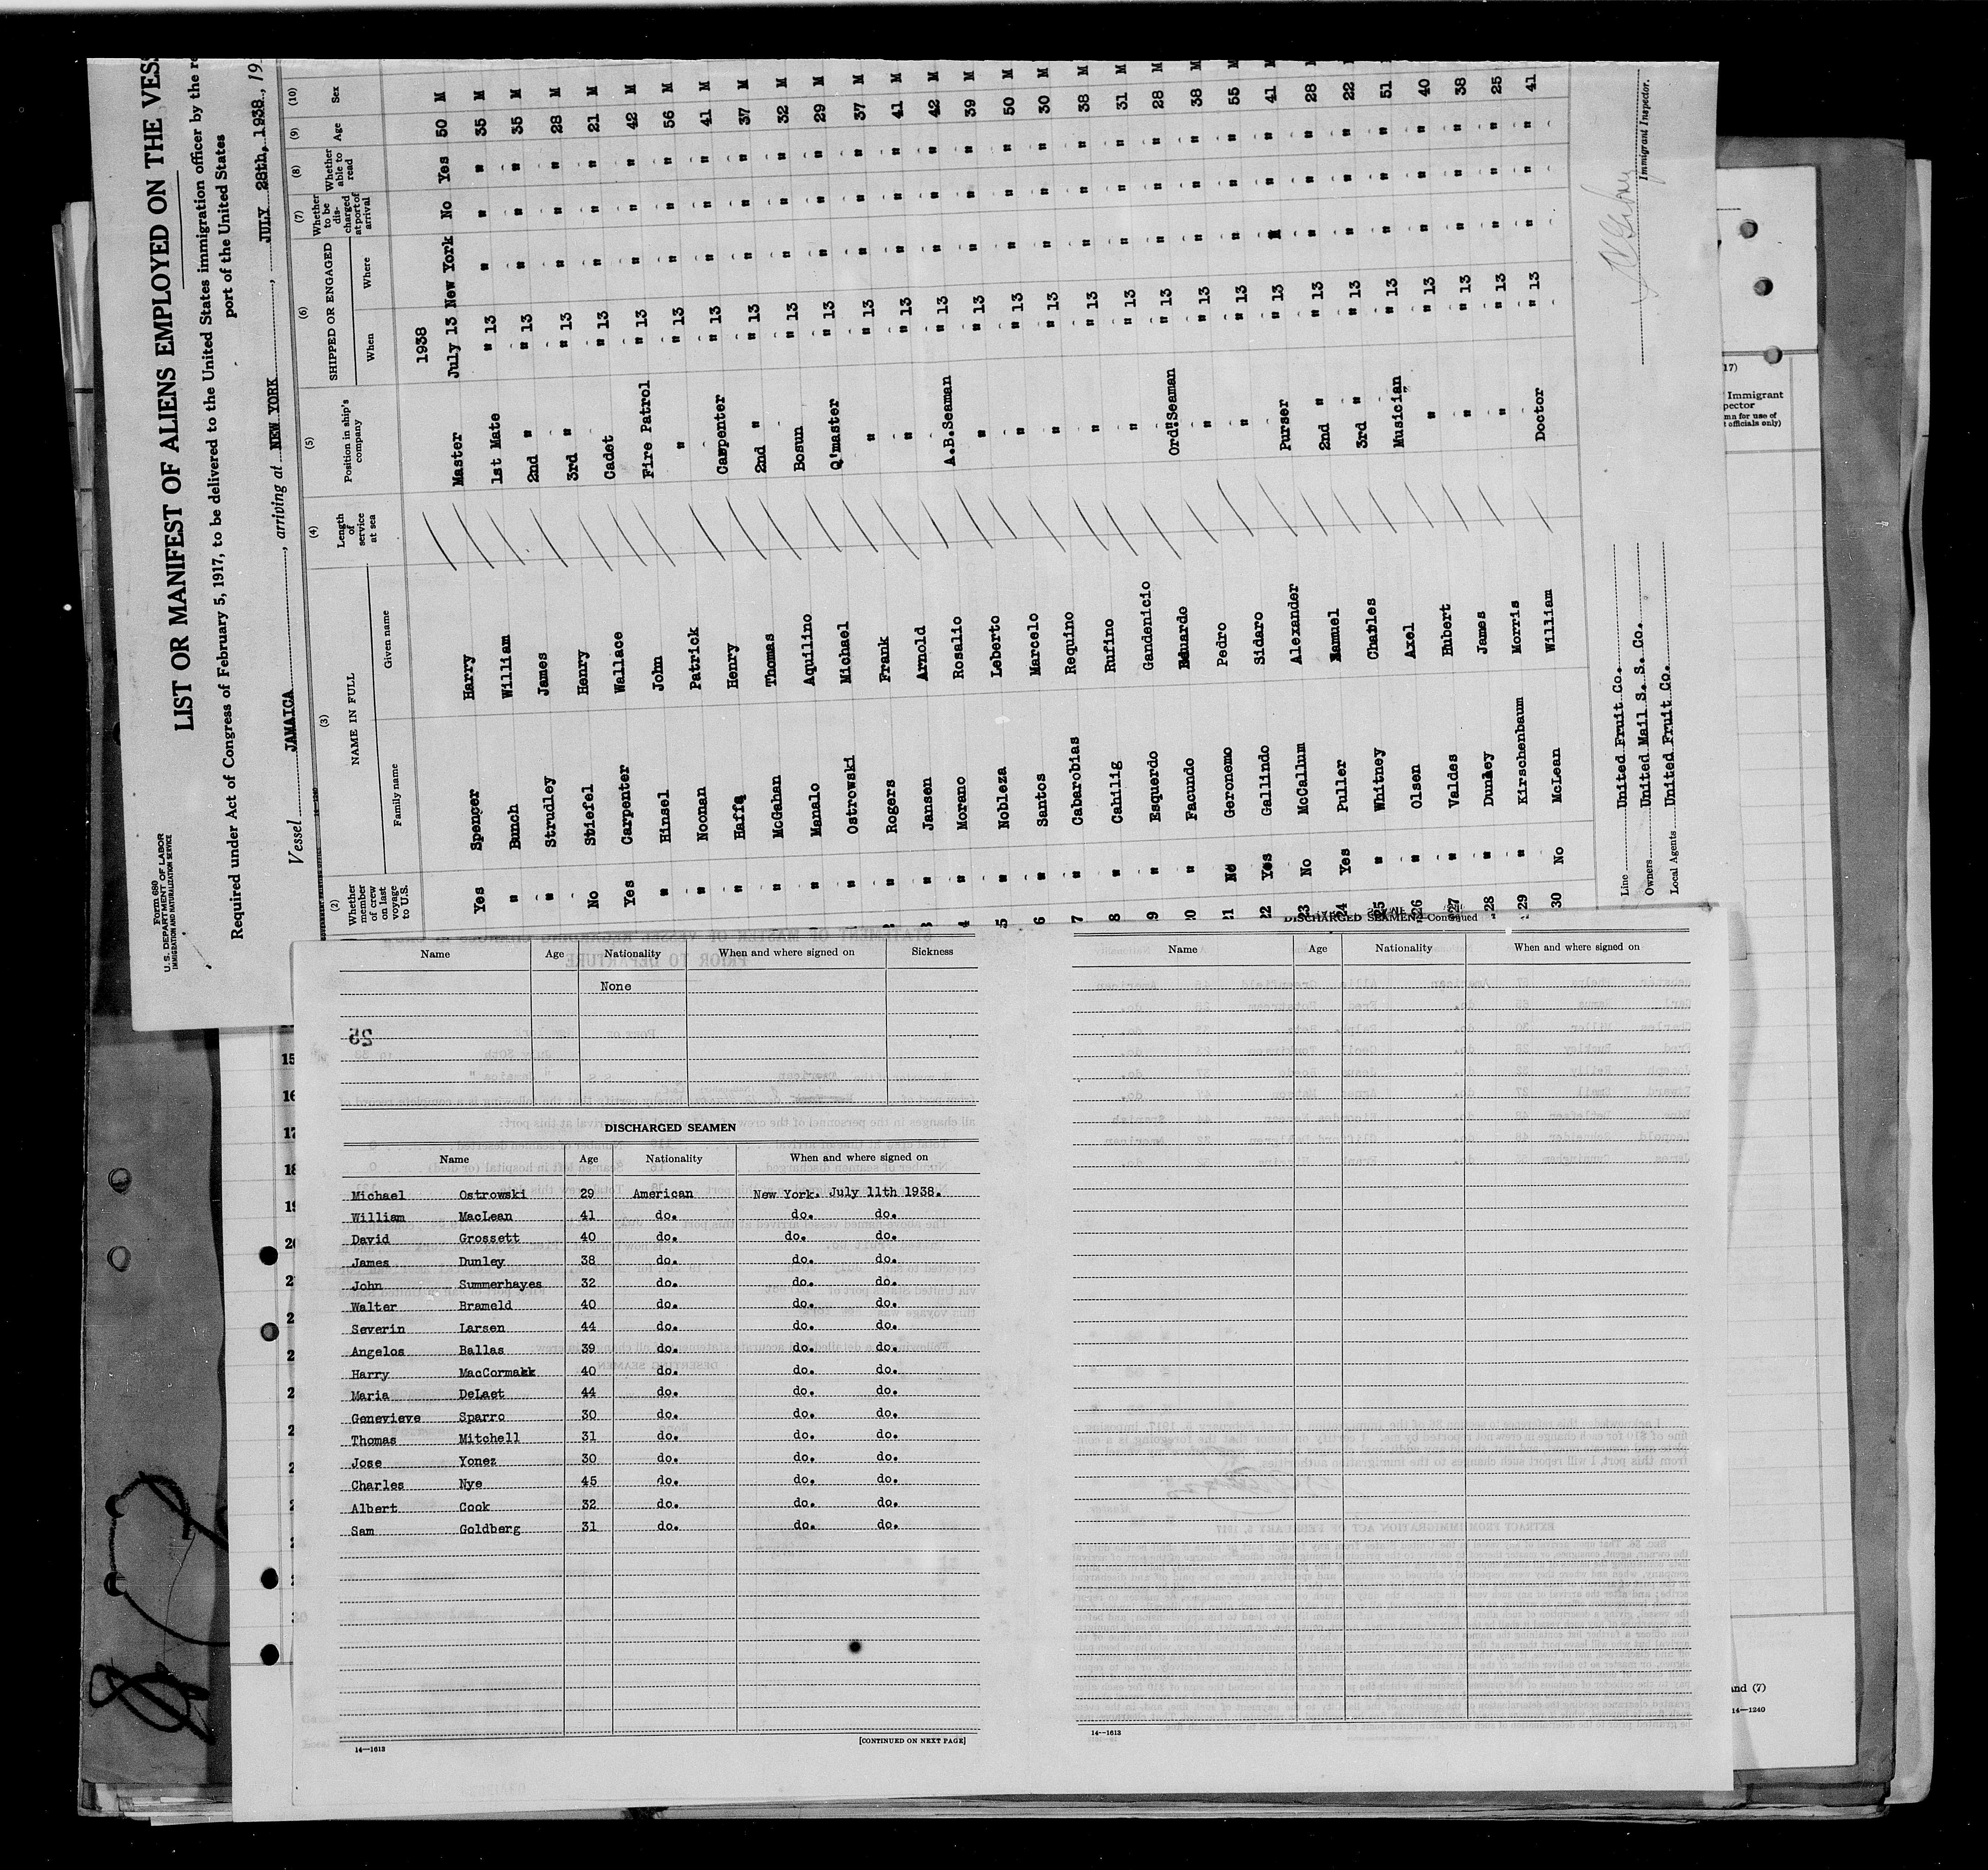 Form 680
U. S. DEPARTMENT OF LABOR
IMMIGRATION AND NATURALIZATION SERVICE
LIST OR MANIFEST OF ALIENS EMPLOYED ON THE VESS
Required under Act of Congress of February 5, 1917, to be delivered to the United States immigration officer by the re
port of the United States
Vessel JAMAICA, arriving at NEW YORK, JULY 28th, 1938, 19
(2) (3) (4) (5) (6) (7) (8) (9) (10)
Whether member of crew on last voyage to U.S. NAME IN FULL Length of service at sea Position in ship's company SHIPPED OR ENGAGED Whether to be discharged at port of arrival Whether able to read Age Sex
Family name Given name When Where
1938
Yes Spencer Harry Master July 13 New York No Yes 50 M
" Bunch William 1st Mate " 13 " " " 35 M
" Strudley James 2nd " " 13 " " " 35 M
No Stiefel Henry 3rd " " 13 " " " 28 M
Yes Carpenter Wallace Cadet " 13 " " " 21 M
" Hinsel John Fire Patrol " 13 " " " 42 M
" Noonan Patrick " " 13 " " " 56 M
" Haffa Henry Carpenter " 13 " " " 41 M
" McGahan Thomas 2nd " " 13 " " " 37 M
" Manalo Aquilino Bosun " 13 " " " 32 M
" Ostrowski Michael Q'master " 13 " " " 29 M
" Rogers Frank " " 13 " " " 37 M
" Jansen Arnold " " 13 " " " 41 M
4 " Morano Rosalio A.B.Seaman " 13 " " " 42 M
5 " Nobleza Leberto " " 13 " " " 39 M
6 " Santos Marcelo " " 13 " " " 50 M
7 " Cabarobias Requino " " 13 " " " 30 M
8 " Cahilig Rufino " " 13 " " " 38 M
9 " Esquerdo Gandenicio " " 13 " " " 31 M
20 " Facundo Eduardo Ord"Seaman " 13 " " " 28 M
21 No Geronemo Pedro " " 13 " " " 38 M
22 Yes Gallindo Sidaro " " 13 " " " 55 M
23 No McCallum Alexander Purser " 13 " " " 41 M
24 Yes Puller Manuel 2nd " " 13 " " " 28 M
25 " Whitney Charles 3rd " " 13 " " " 22 M
26 " Olsen Axel Musician " 13 " " " 51
27 " Valdes Hubert " " 13 " " " 40
28 " Dunley James " " 13 " " " 38
29 " Kirschenbaum Morris " " 13 " " " 25
30 No McLean William Doctor " 13 " " " 41
Line United Fruit Co.
Owners United Mail S. S. Co.
Local Agents United Fruit Co.
Immigrant Inspector.
Name Age Nationality When and where signed on Sickness
None
DISCHARGED SEAMEN
Name Age Nationality When and where signed on
Michael Ostrowski 29 American New York. July 11th 1938.
William MacLean 41 do. do. do.
David Grossett 40 do. do. do.
James Dunley 38 do. do. do.
John Summerhayes 32 do. do. do.
Walter Brameld 40 do. do. do.
Severin Larsen 44 do. do. do.
Angelos Ballas 39 do. do. do.
Harry MacCormakk 40 do. do. do.
Maria DeLaet 44 do. do. do.
Genevieve Sparro 30 do. do. do.
Thomas Mitchell 31 do. do. do.
Jose Yonez 30 do. do. do.
Charles Nye 45 do. do. do.
Albert Cook 32 do. do. do.
Sam Goldberg 31 do. do. do.
14—1613
[CONTINUED ON NEXT PAGE]
DISCHARGED SEAMEN—Continued
Name Age Nationality When and where signed on
14—1613
15
16
17
18
17)
Immigrant
pector
officials only)
and (7)
14—1240